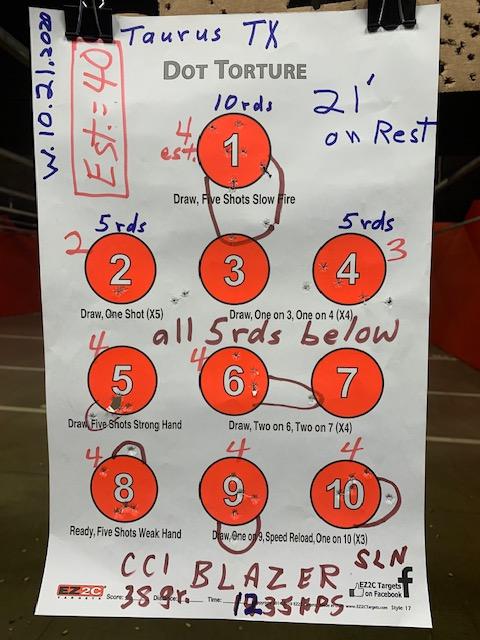 W. 10.21.2020
Taurus TX
Est. = 40
DOT TORTURE
10 rds
21'
on Rest
4
est.
1
Draw, Five Shots Slow Fire
5rds
5rds
2
2
3
4
3
Draw, One Shot (X5)
Draw, One on 3, One on 4 (X4)
all 5rds below
4
5
4
6
7
Draw, Five Shots Strong Hand
Draw, Two on 6, Two on 7 (X4)
4
8
4
9
4
10
Ready, Five Shots Weak Hand
Draw, One on 9, Speed Reload, One on 10 (X3)
CCI BLAZER
SLN
38gr. 1235 FPS
EZ2C
TARGETS
Score:
Distance:
Time:
www.EZ2CTargets.com
Style 17
EZ2C Targets
on Facebook
f